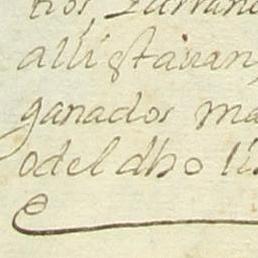 tios
alli estavan
ganados ma
o del dho li